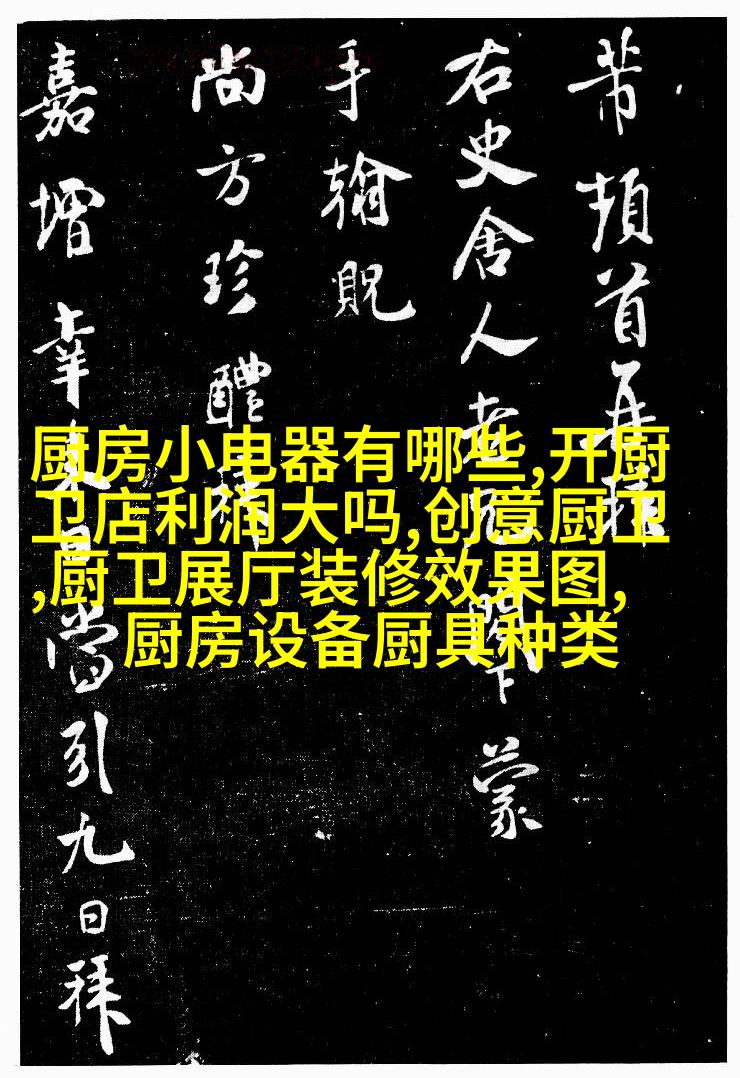 芾頓首再拜
右史舍人老兄閣下蒙
手翰貺
尚方珍醴
嘉增幸當引九日拜
厨房小电器有哪些,开厨
卫店利润大吗,创意厨卫
,厨卫展厅装修效果图,
厨房设备厨具种类